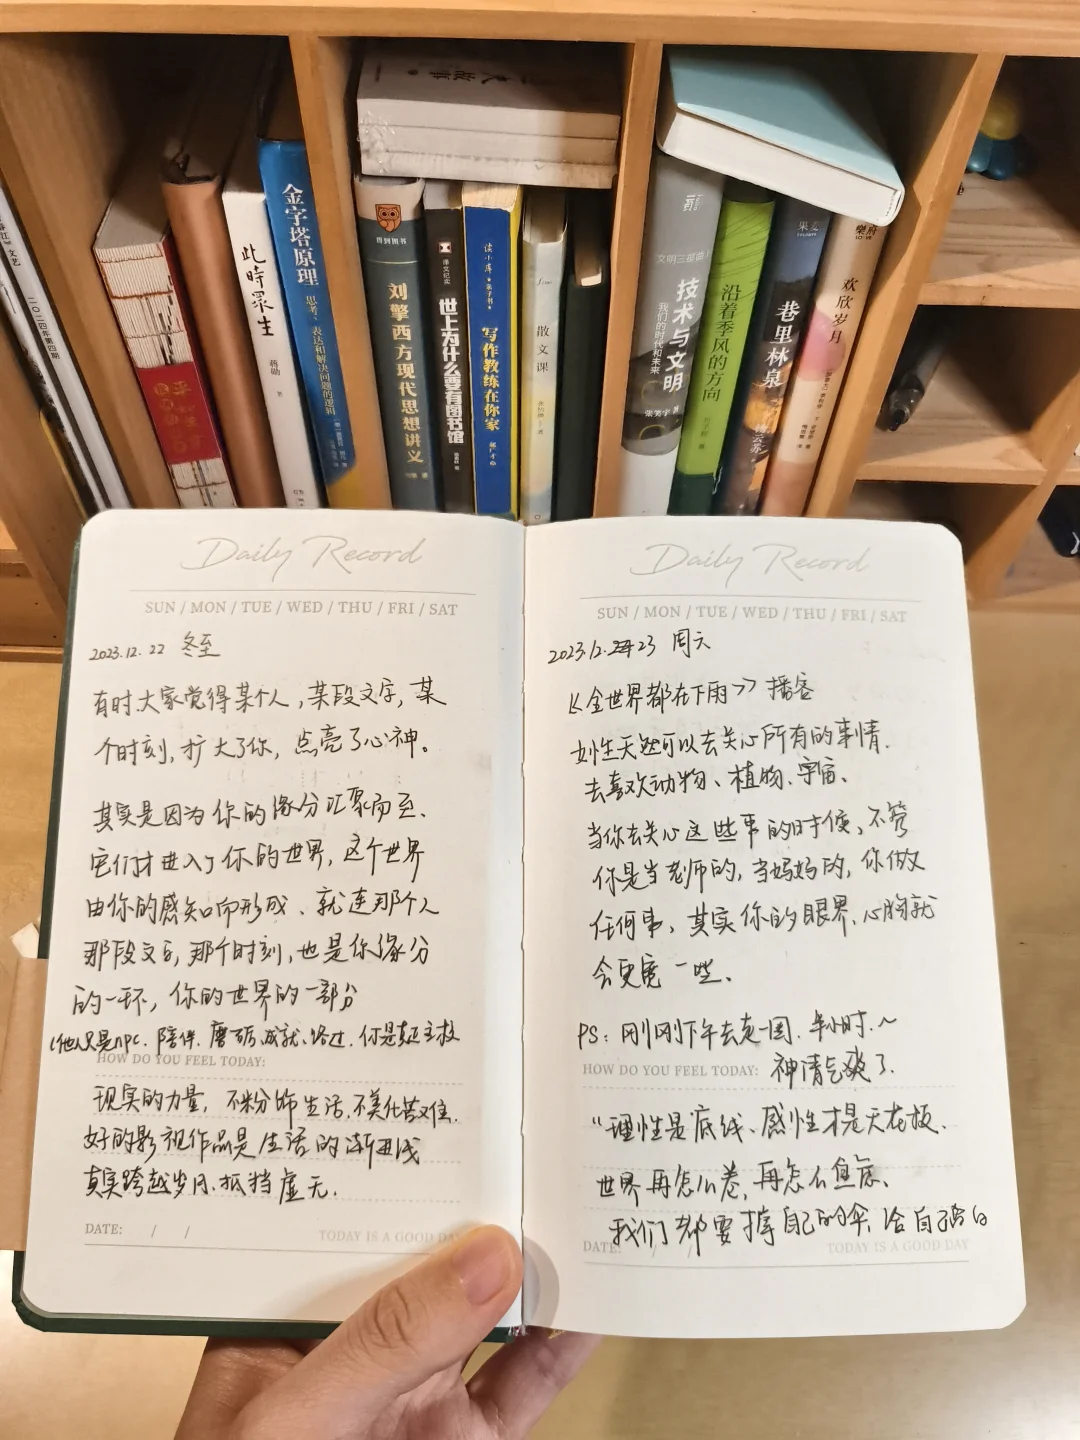 大故事
金字塔原理
思考、表达和解决问题的逻辑
此時眾生
蒋勋 著
得到图书
刘擎西方现代思想讲义
译文纪实
世上为什么要有图书馆
写作教练在你家
散文课
文明三部曲
技术与文明
我们的时代和未来
张笑宇 著
沿着季风的方向
果麦
巷里林泉
杨云苏
樂府
欢欣岁月
二〇二四年第四期
文艺
Daily Record
SUN / MON / TUE / WED / THU / FRI / SAT
2023.12.22 冬至
有时大家觉得某个人,某段文字,某
个时刻,扩大了你,点亮了心神。
其实是因为你的缘分汇聚而至、
它们才进入了你的世界,这个世界
由你的感知而形成、就连那个人
那段文字,那个时刻,也是你缘分
的一环,你的世界的一部分
(他人只是NPC.陪伴.磨砺.成就.路过.你是真正主校
HOW DO YOU FEEL TODAY:
现实的力量,不粉饰生活,不美化苦难.
好的影视作品是生活的渐进线
真实跨越岁月.抵挡虚无.
DATE: / /
TODAY IS A GOOD DAY
Daily Record
SUN / MON / TUE / WED / THU / FRI / SAT
2023.12.23 周六
《全世界都在下雨》播客
女性天然可以去关心所有的事情.
去喜欢动物、植物、宇宙、
当你去关心这些事的时候,不管
你是当老师的,当妈妈的,你做
任何事,其实你的眼界、心胸就
会更宽一些、
PS:刚刚下午去走一圈.半小时.~
HOW DO YOU FEEL TODAY: 神清气爽了.
“理性是底线、感性才是天花板、
世界再怎么卷,再怎么焦虑、
我们都要撑自己的伞、给自己留白
DATE: / /
TODAY IS A GOOD DAY